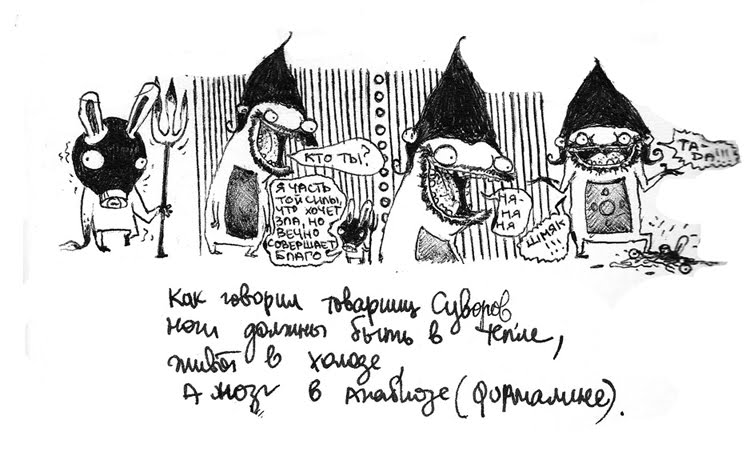 КТО ТЫ?
Я ЧАСТЬ
ТОЙ СИЛЫ,
ЧТО ХОЧЕТ
ЗЛА, НО
ВЕЧНО
СОВЕРШАЕТ
БЛАГО
ШМЯК
!!!
ТА-
ДА!!!
Как говорил товарищ Суворов
ноги должны быть в тепле,
живот в холоде,
А мозг в анабиозе (формалине).